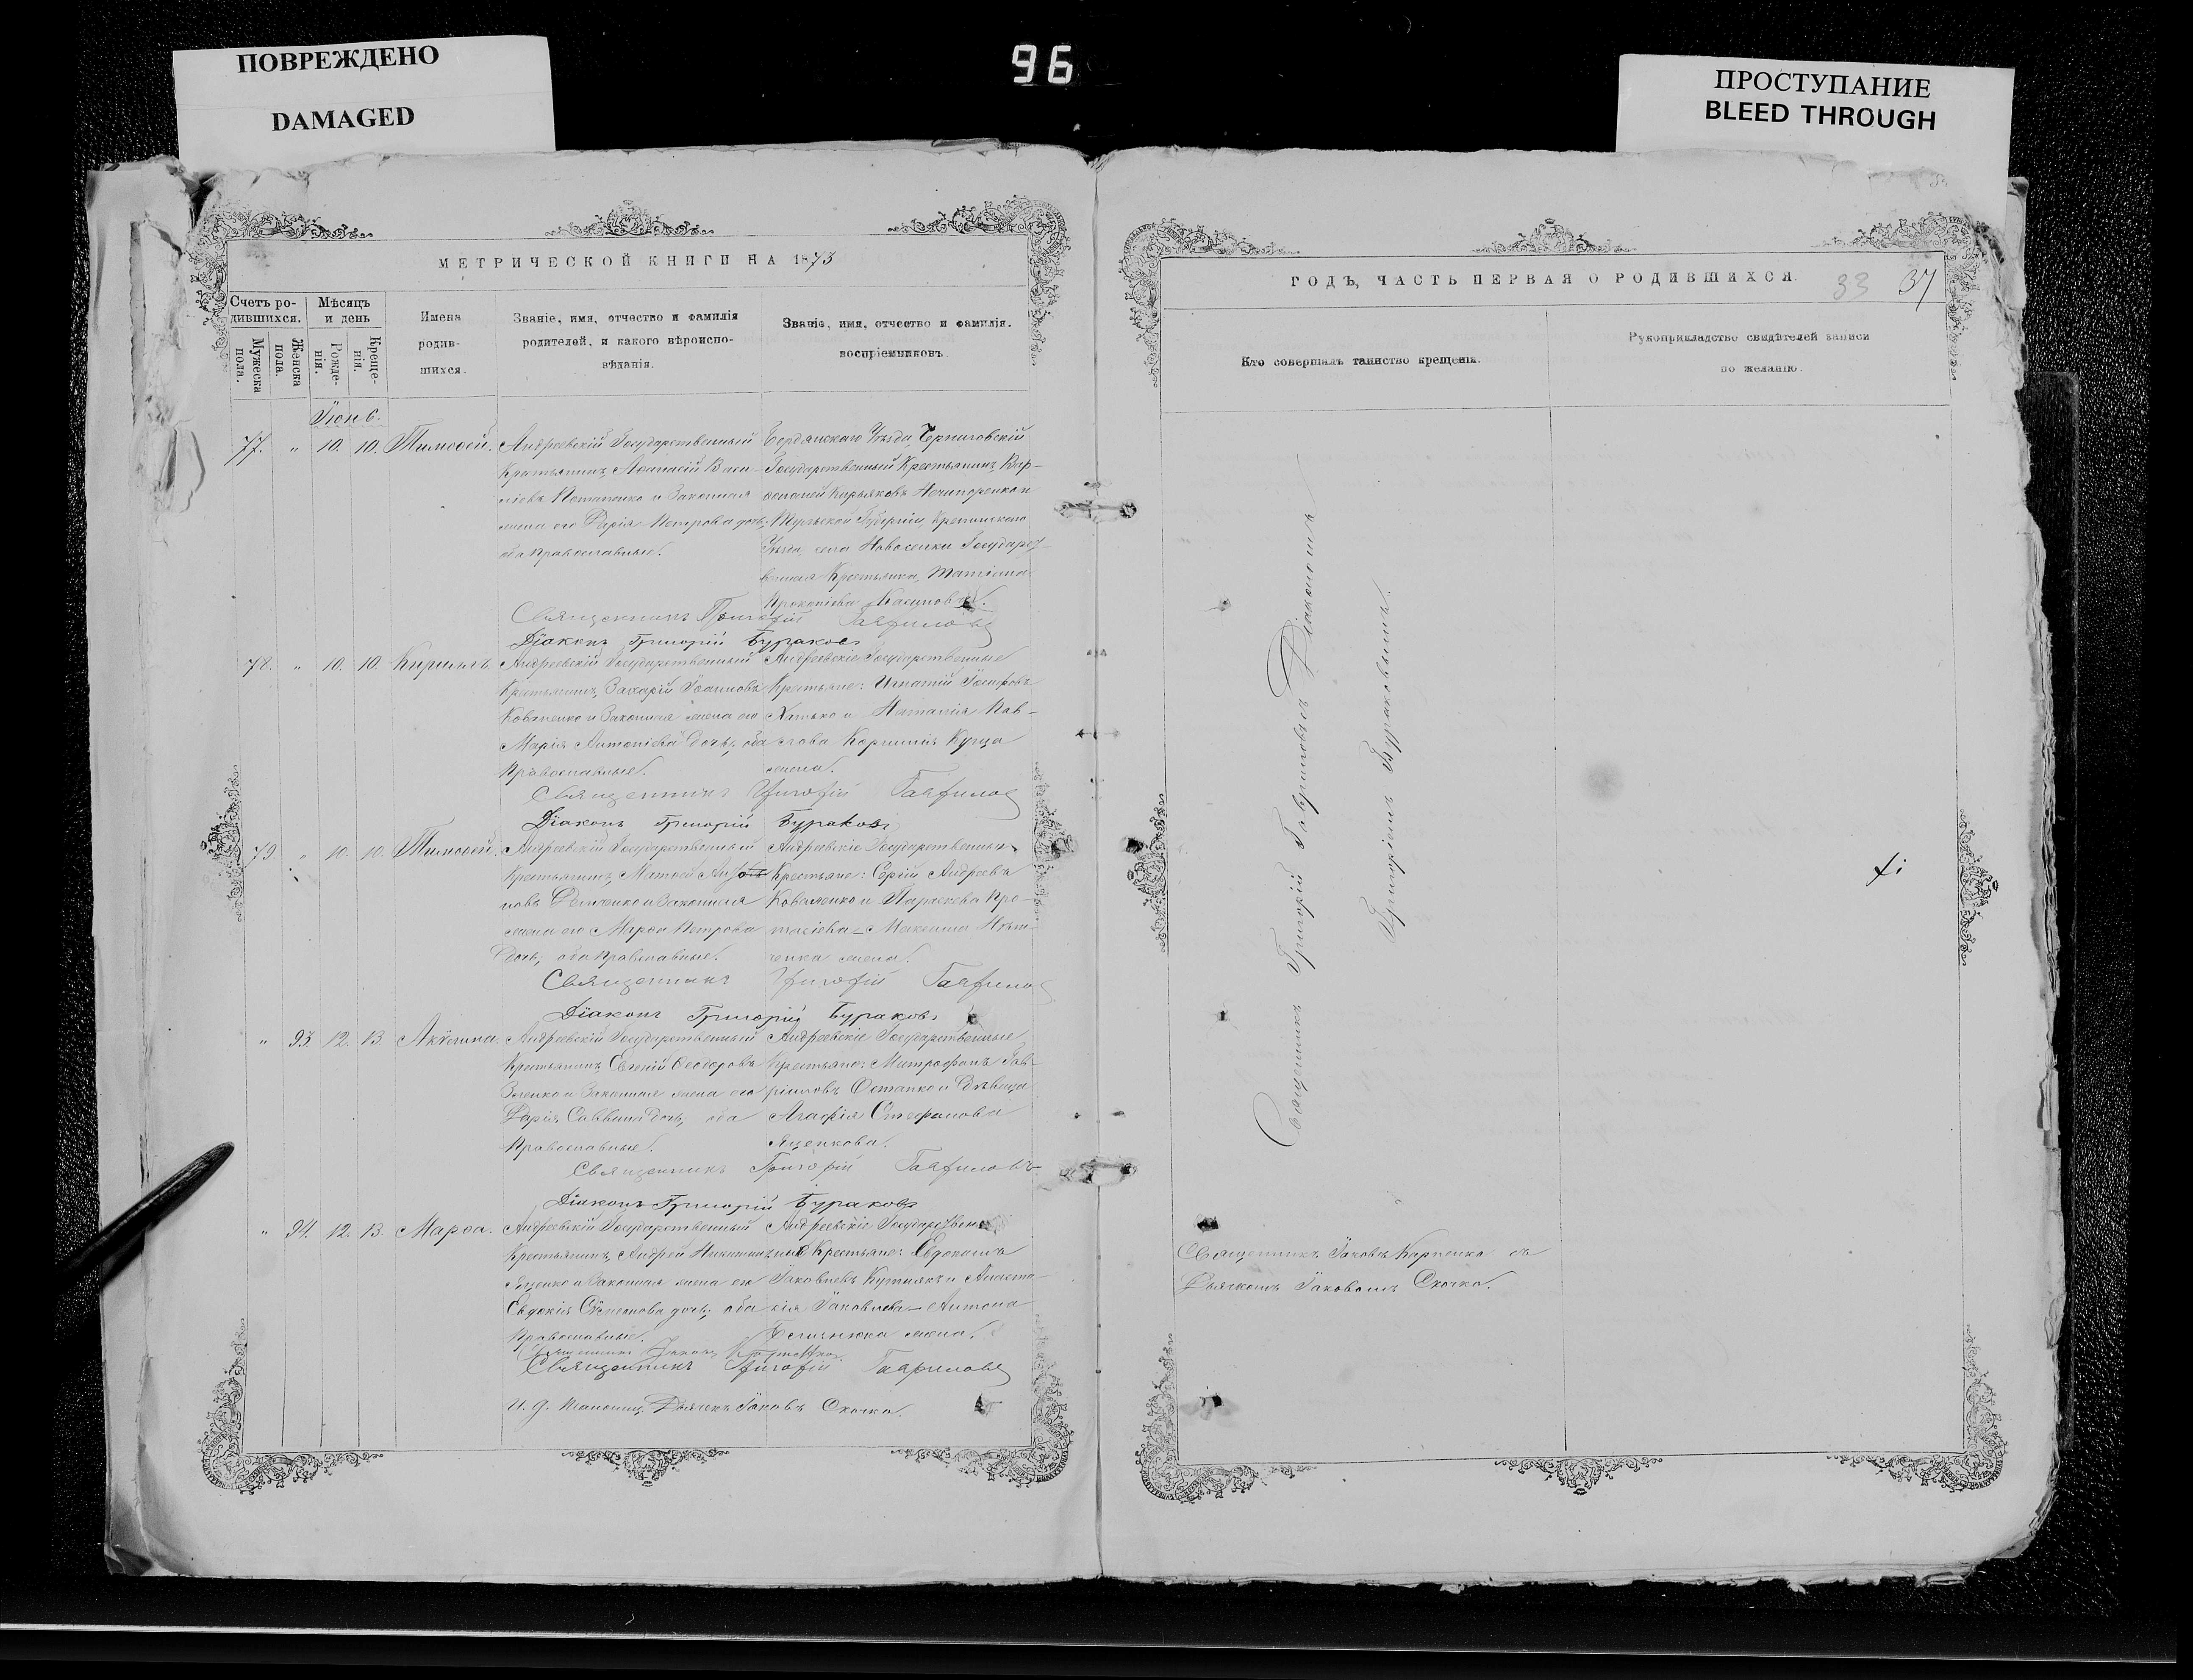 ПОВРЕЖДЕНО
DAMAGED
96
ПРОСТУПАНИЕ
BLEED THROUGH
МЕТРИЧЕСКОЙ КНИГИ НА 1873
Счетъ ро-
дившихся.
Мужеска
пола.
Женска
пола.
Мѣсяцъ
и день
Рожде-
нія.
Креще-
нія.
Имена
родив-
шихся.
Званіе, имя, отчество и фамилія
родителей, и какого вѣроиспо-
вѣданія.
Званіе, имя, отчество и фамилія.
воспріемниковъ.
Іюнь.
77. " 10. 10. Тимоѳей.
Андреевскій Государственный
Крестьянинъ, Аѳанасій Васи-
ліевъ Потапенко и Законная
жена его Дарія Петрова дочь;
оба православные.
Бердянскаго Уѣзда Черниговскій
Государственный Крестьянинъ, Вар-
Нечипоренко и
Губерніи,
Уѣзда, села Новоселки Государст-
венная Крестьянка, Татіана
Прокопіева
Священникъ Григорій Гавриловъ
Діаконъ Григорій Бураковъ
78. " 10. 10. Кириллъ.
Андреевскій Государственный
Крестьянинъ, Захарій Іоанновъ
Коваленко и Законная жена его
Марія Антоніева дочь; оба
Православные.
Андреевскіе Государственные
Крестьяне: Игнатій Іосифовъ
Хатько и Наталія Пав-
лова Корнилія Куща
жена.
Священникъ Григорій Гавриловъ
Діаконъ Григорій Бураковъ
79. " 10. 10. Тимоѳей.
Андреевскій Государственный
Крестьянинъ, Матѳей
новъ Демченко и Законная
жена его Марѳа Петрова
дочь; оба православные.
Андреевскіе Государственные
Крестьяне: Сергій Андреевъ
Коваленко и Параскева Про-
тасіева – Максима
ченка жена.
Священникъ Григорій Гавриловъ
Діаконъ Григорій Бураковъ
" 93 12. 13. Акѵлина.
Андреевскій Государственный
Крестьянинъ, Евгеній Ѳеодоровъ
Зленко и Законная жена его
Дарія Саввина дочь; оба
Православные.
Андреевскіе Государственные
Крестьяне: Митрофанъ Гав-
ріиловъ Остапко и Дѣвица
Агафія Стефанова
Яценкова.
Священникъ Григорій Гавриловъ
Діаконъ Григорій Бураковъ
" 94. 12. 13. Марѳа.
Андреевскій Государственный
Крестьянинъ, Андрей
Яценко и Законная жена его
Евдокія Симеонова дочь; оба
Православные.
Андреевскіе Государствен-
ные Крестьяне: Евдокимъ
Іаковлевъ и Анаста-
сія Іаковлева – Антона
жена.
Священникъ Іаковъ Карпенко
Священникъ Григорій Гавриловъ
И. д. Псаломщ. Дьячекъ Іаковъ Скочко.
ГОДЪ, ЧАСТЬ ПЕРВАЯ О РОДИВШИХСЯ.
33 37
Кто совершалъ таинство крещенія.
Рукоприкладство свидѣтелей записи
по желанію.
Священникъ Григорій Гавриловъ съ Діакономъ
Григоріемъ Бураковымъ.
Священникъ Іаковъ Карпенко съ
Дьячкомъ Іаковомъ Скочко.